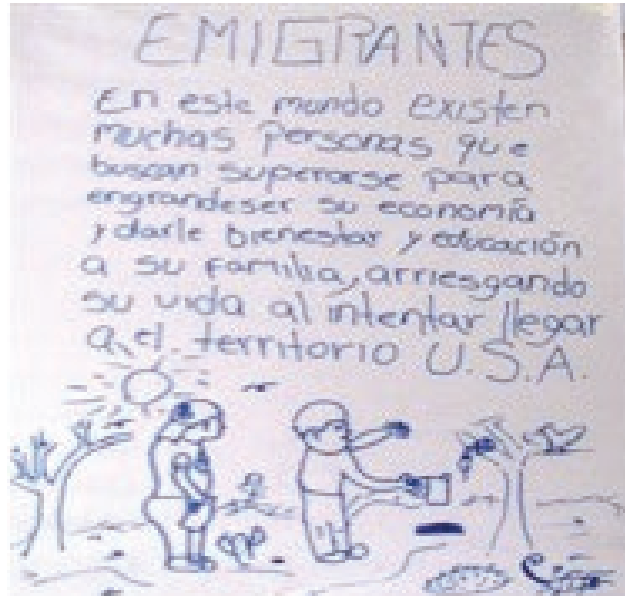 EMIGRANTES
En este mundo existen
muchas personas que
buscan superarse para
engrandeser su economía
y darle bienestar y educación
a su familia, arriesgando
su vida al intentar llegar
a el territorio U.S.A.